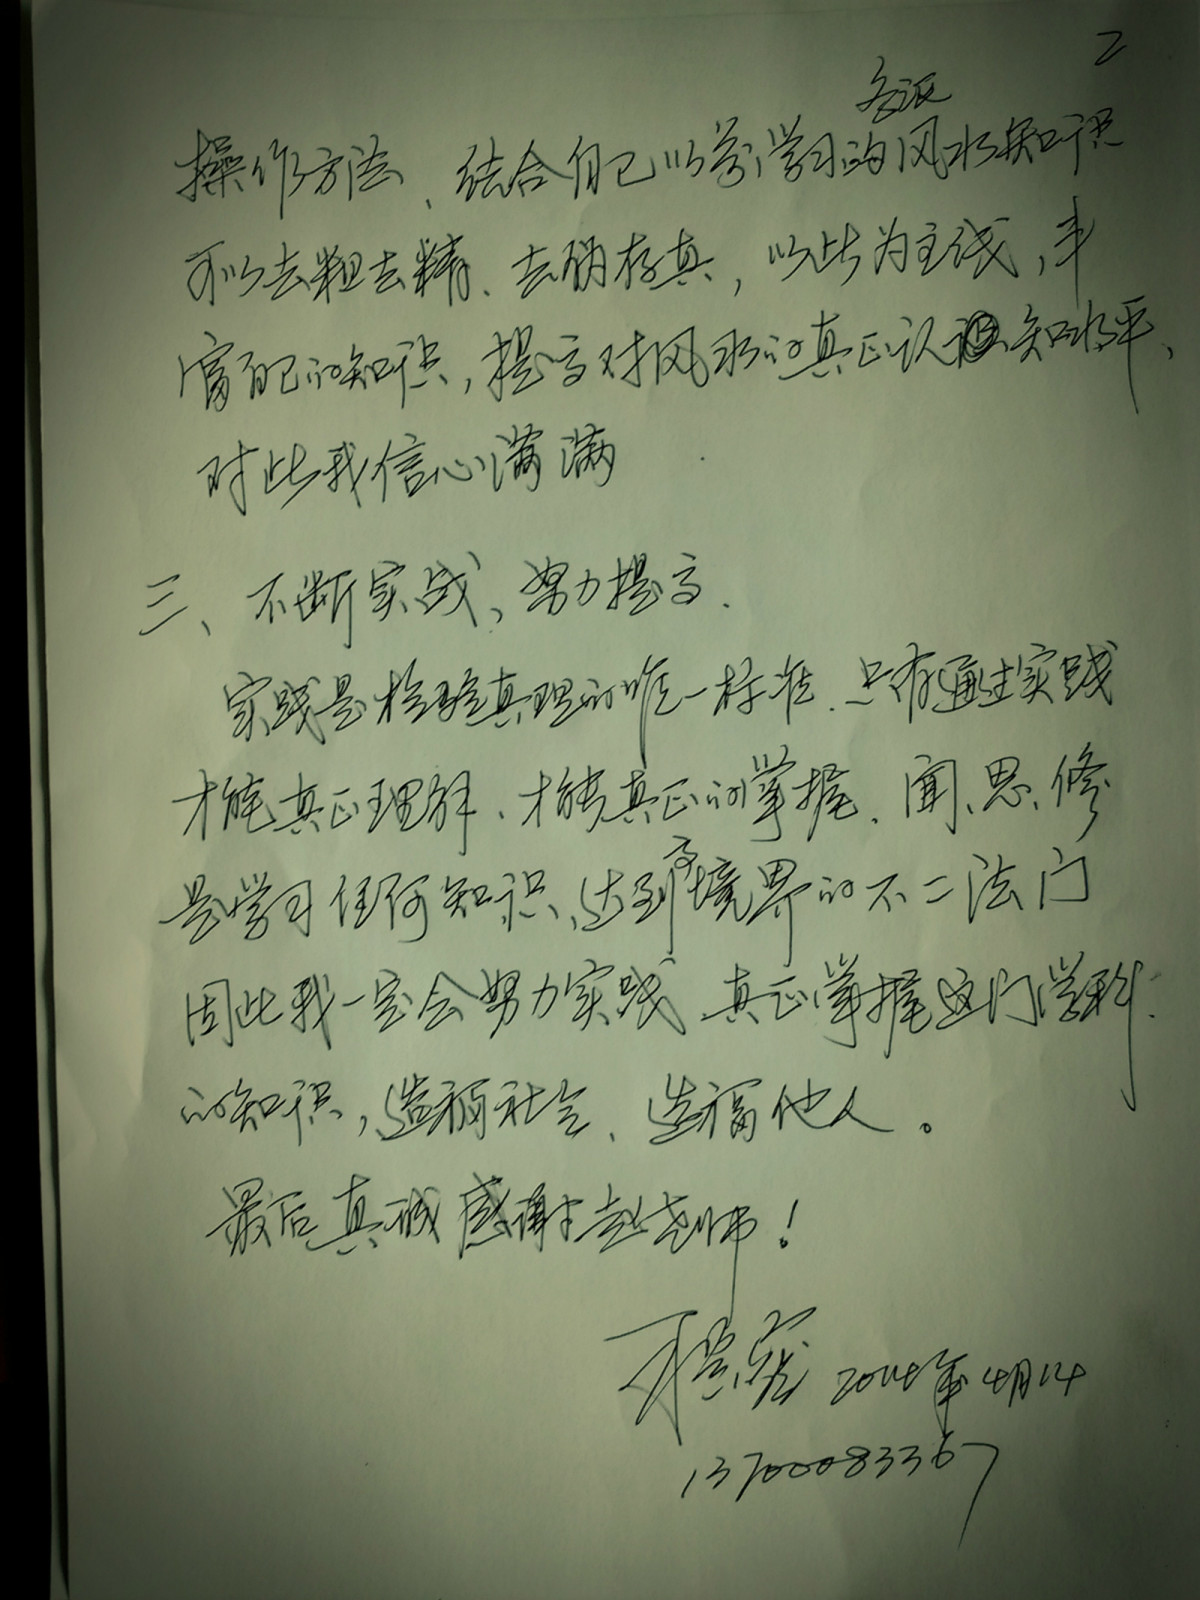 二
操作方法、结合自己以前学习的各派风水知识
可以去粗去精、去肭存真，以此为主线，丰
富自己的知识，提高对风水的真正认知水平、
对此我信心满满
三、不断实战、努力提高.
实践是检验真理的唯一标准.只有通过实践
才能真正理解、才能真正的掌握.闻、思、修
是学习任何知识、达到高境界的不二法门
因此我一定会努力实践、真正掌握这门学科
的知识，造福社会、造福他人。
最后真诚感谢赵老师！
2014年4月14
13700083367